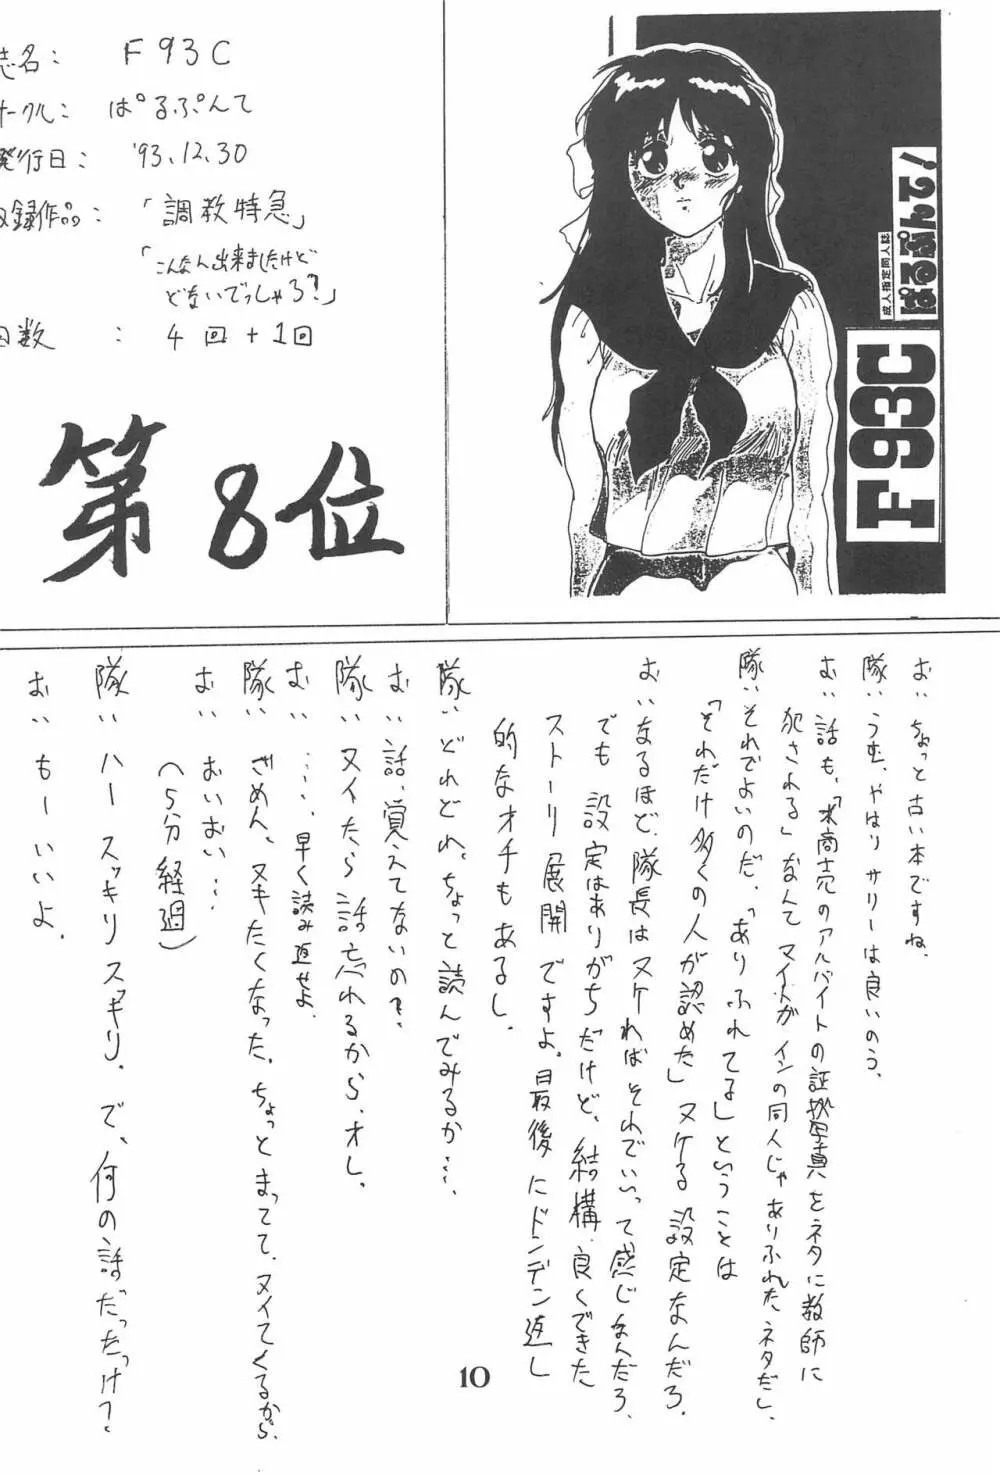 誌名： F93C
サークル： ぱるぷんて
発行日： '93.12.30
収録作品： 「調教特急」
「こんなん出来ましたけど
どないでっしゃろ？」
回数 ： 4回+1回
第8位
成人指定同人誌
ぱるぷんて！
F93C
む‥ ちょっと古い本ですね。
隊‥ うむ、やはりサリーは良いのう。
む‥ 話も、「水商売のアルバイトの証拠写真をネタに教師に
犯される」なんてマイナーオインの同人じゃありふれたネタだし。
隊‥ それでよいのだ。「ありふれてる」ということは
「それだけ多くの人が認めた」ヌケる設定なんだろ。
む‥ なるほど、隊長はヌケればそれでいいって感じなんだろ、
でも設定はありがちだけど、結構良くできた
ストーリ展開ですよ。最後にドンデン返し
的なオチもあるし。
隊‥ どれどれ、ちょっと読んでみるか‥‥
む‥ 話、覚えてないの？
隊‥ ヌイたら話忘れるから、オレ。
む‥ ‥‥、早く読み返せよ
隊‥ ざめん、ヌキたくなった。ちょっとまってて、ヌイてくるから。
む‥ おいおい…
（5分経過）
隊‥ ハースッキリスッキリ。で、何の話だったっけ？
む‥ もーいいよ。
10